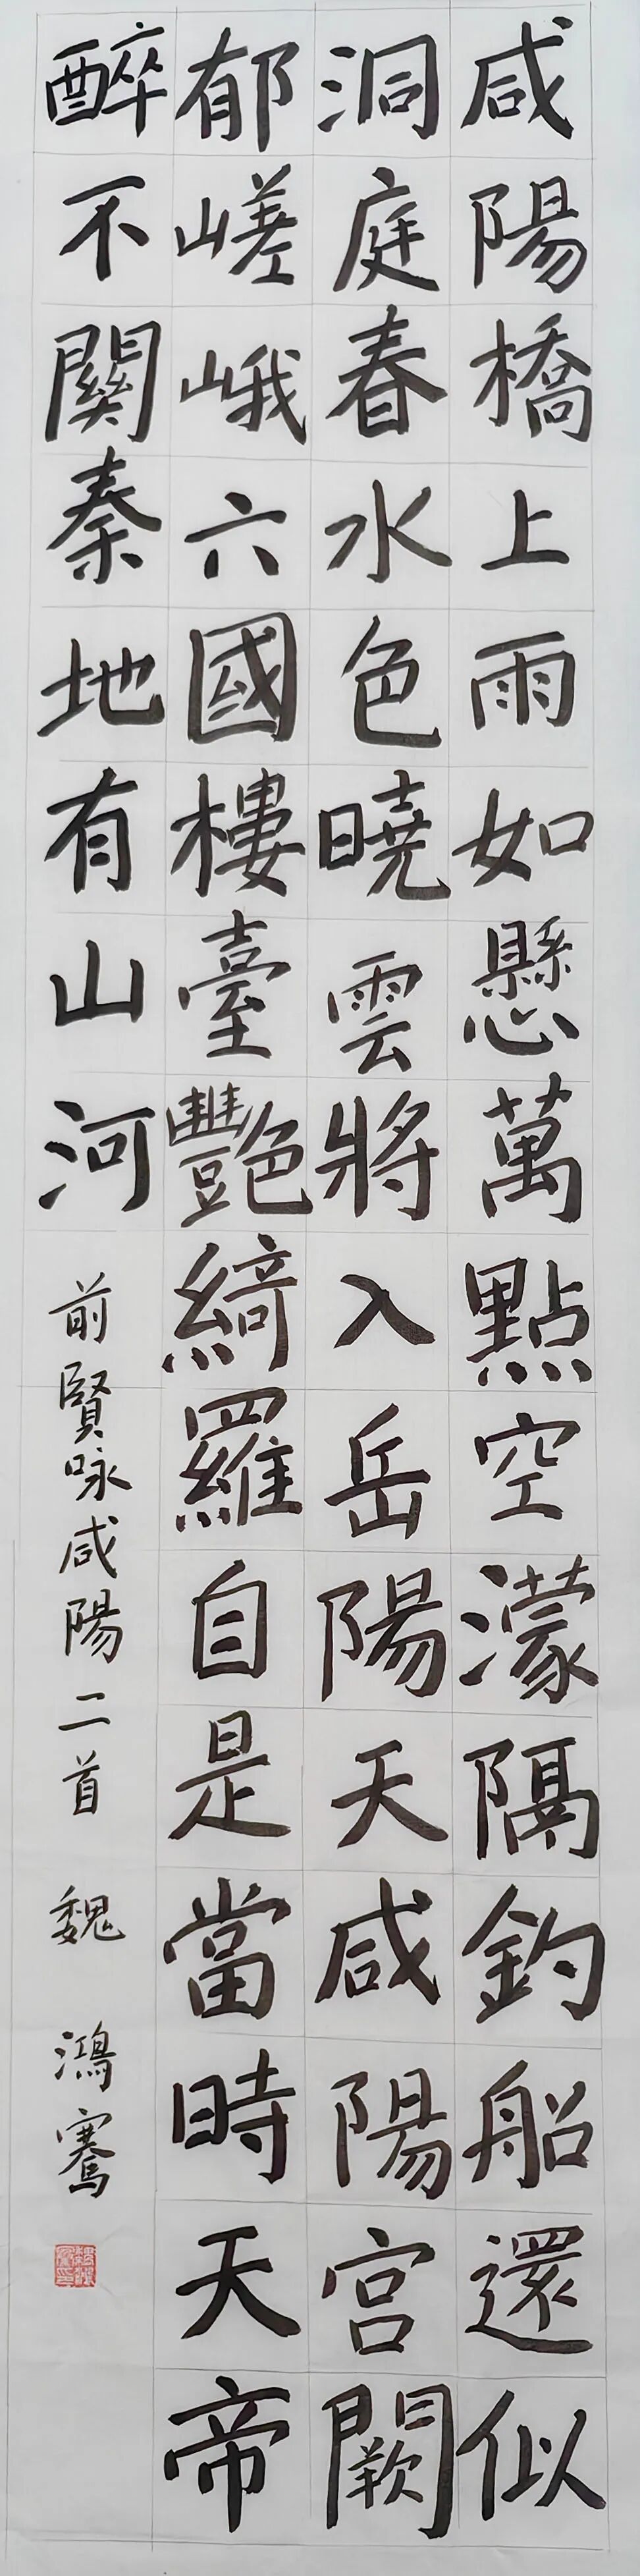 咸陽橋上雨如懸萬點空濛隔釣船還似
洞庭春水色曉雲將入岳陽天咸陽宮闕
郁嵯峨六國樓臺艷綺羅自是當時天帝
醉不關秦地有山河
前賢咏咸陽二首 魏 鴻騫